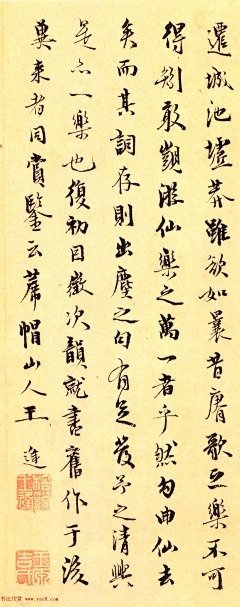 遷城池墟莽雖欲如曩昔賡歌之樂不可
得則敢覬聆仙樂之萬一者乎然句曲仙去
矣而其詞存則出塵之句有足發予之清興
是亦一樂也復初因徵次韻就書舊作于後
冀來者同賞鑒云蓆帽山人王逢